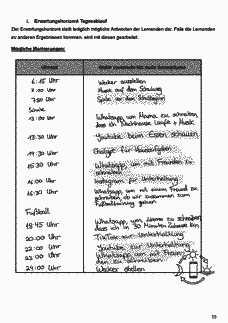 4. Erwartungshorizont Tagesablauf
Der Erwartungshorizont stellt lediglich mögliche Antworten der Lernenden dar. Falls die Lernenden
zu anderen Ergebnissen kommen, wird mit diesen gearbeitet.
Mögliche Markierungen:
6:15 Uhr Wecker ausstellen
7:00 Uhr Musik auf dem Schulweg
7:50 Uhr
Schule
13:00 Uhr Whatsapp, um Mama zu schreiben,
dass ich Nachhause laufe + Musik
13:30 Uhr Youtube beim Essen schauen
14:30 Uhr Google für Hausaufgaben
15:30 Uhr Whatsapp, um mit Freunden zu
schreiben
16:00 Uhr Instagram für Unterhaltung
16:30 Uhr Whatsapp, um mit einem Freund zu
schreiben, ob wir zusammen zum
Fußballtraining gehen
Fußball
18:45 Uhr Whatsapp, um Mama zu schreiben,
dass ich in 30 Minuten Zuhause bin
20:00 Uhr TikTok zur Unterhaltung
22:00 Uhr Youtube zur Unterhaltung
23:00 Uhr Whatsapp, um mit Freunden
zu schreiben
24:00 Uhr Wecker stellen